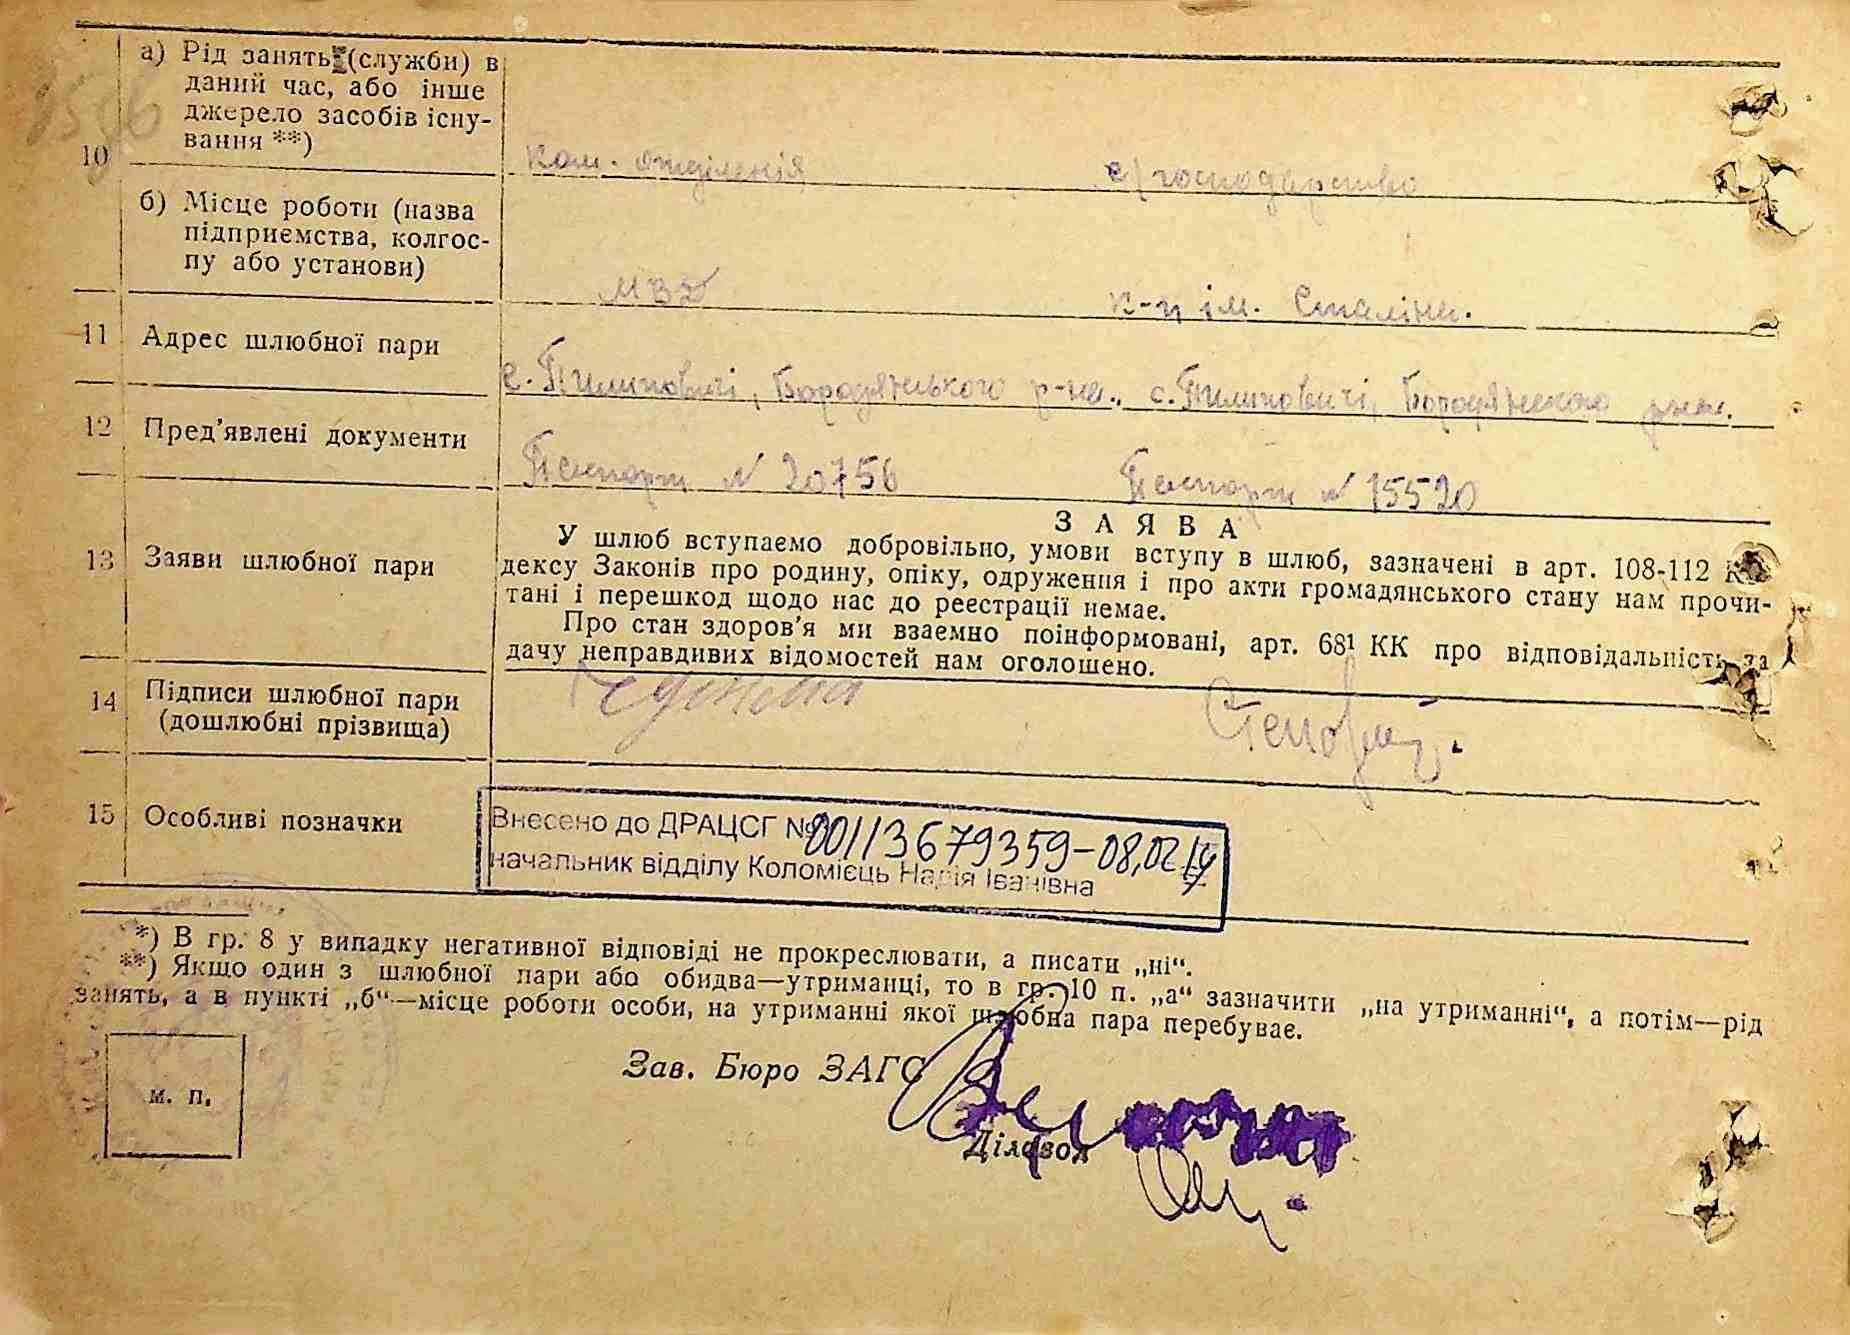 10
а) Рід занять (служби) в
даний час, або інше
джерело засобів існу-
вання **)
ком. отділенія
с/господарство
б) Місце роботи (назва
підприємства, колгос-
пу або установи)
МВД
к-п ім. Сталіна.
11 Адрес шлюбної пари
с. Пилиповичі, Бородянського р-на., с. Пилиповичі, Бородянського
12 Пред'явлені документи
Паспорт № 20756
Паспорт № 15520
13 Заяви шлюбної пари
ЗАЯВА
У шлюб вступаємо добровільно, умови вступу в шлюб, зазначені в арт. 108-112
дексу Законів про родину, опіку, одруження і про акти громадянського стану нам прочи-
тані і перешкод щодо нас до реестрації немае.
Про стан здоров'я ми взаемно поінформовані, арт. 68¹ КК про відповідальність за
дачу неправдивих відомостей нам оголошено.
14 Підписи шлюбної пари
(дошлюбні прізвища)
15 Особливі позначки
Внесено до ДРАЦСГ № 00113679359-08,02,
начальник відділу Коломієць Надія Іванівна
*) В гр. 8 у випадку негативної відповіді не прокреслювати, а писати „ні“.
**) Якщо один з шлюбної пари або обидва—утриманці, то в гр. 10 п. „а“ зазначити „на утриманні“, а потім—рід
занять, а в пункті „б“—місце роботи особи, на утриманні якої шлюбна пара перебуває.
м. п.
Зав. Бюро ЗАГС
Діловод